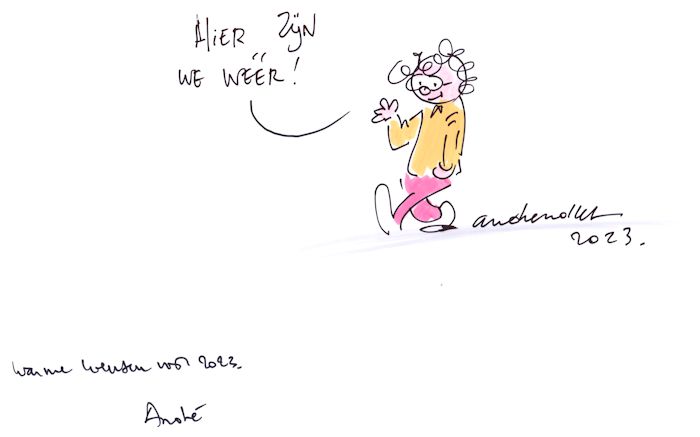 HIER ZIJN
WE WEER!
2023.
warme wensen voor 2023.
André